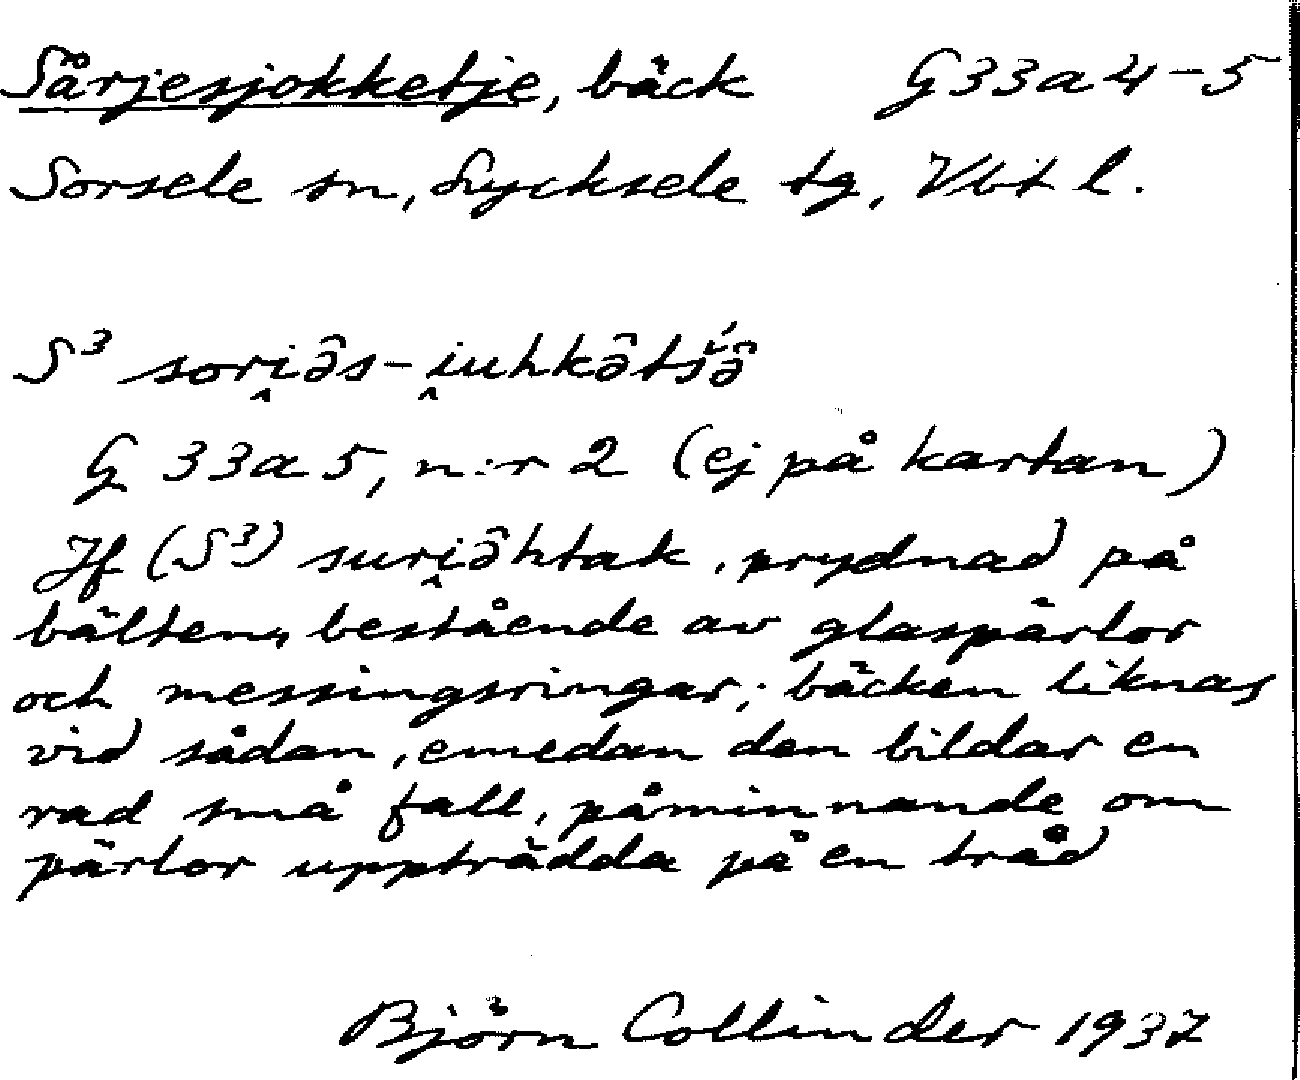 Sårjesjokketje, bäck G33a4-5
Sorsele sn, Lycksele tg, Vbt l.
S³ sori̭ə̂s-i̭uhkə̂tś̌ə̂
G 33a5, n:r 2 (ej på kartan)
Jf (S³) suri̭ə̂htak, prydnad på
bälten, bestående av glaspärlor
och messingsringar; bäcken liknas
vid sådan, emedan den bildar en
rad små fall, påminnande om
pärlor uppträdda på en tråd
Björn Collinder 1937